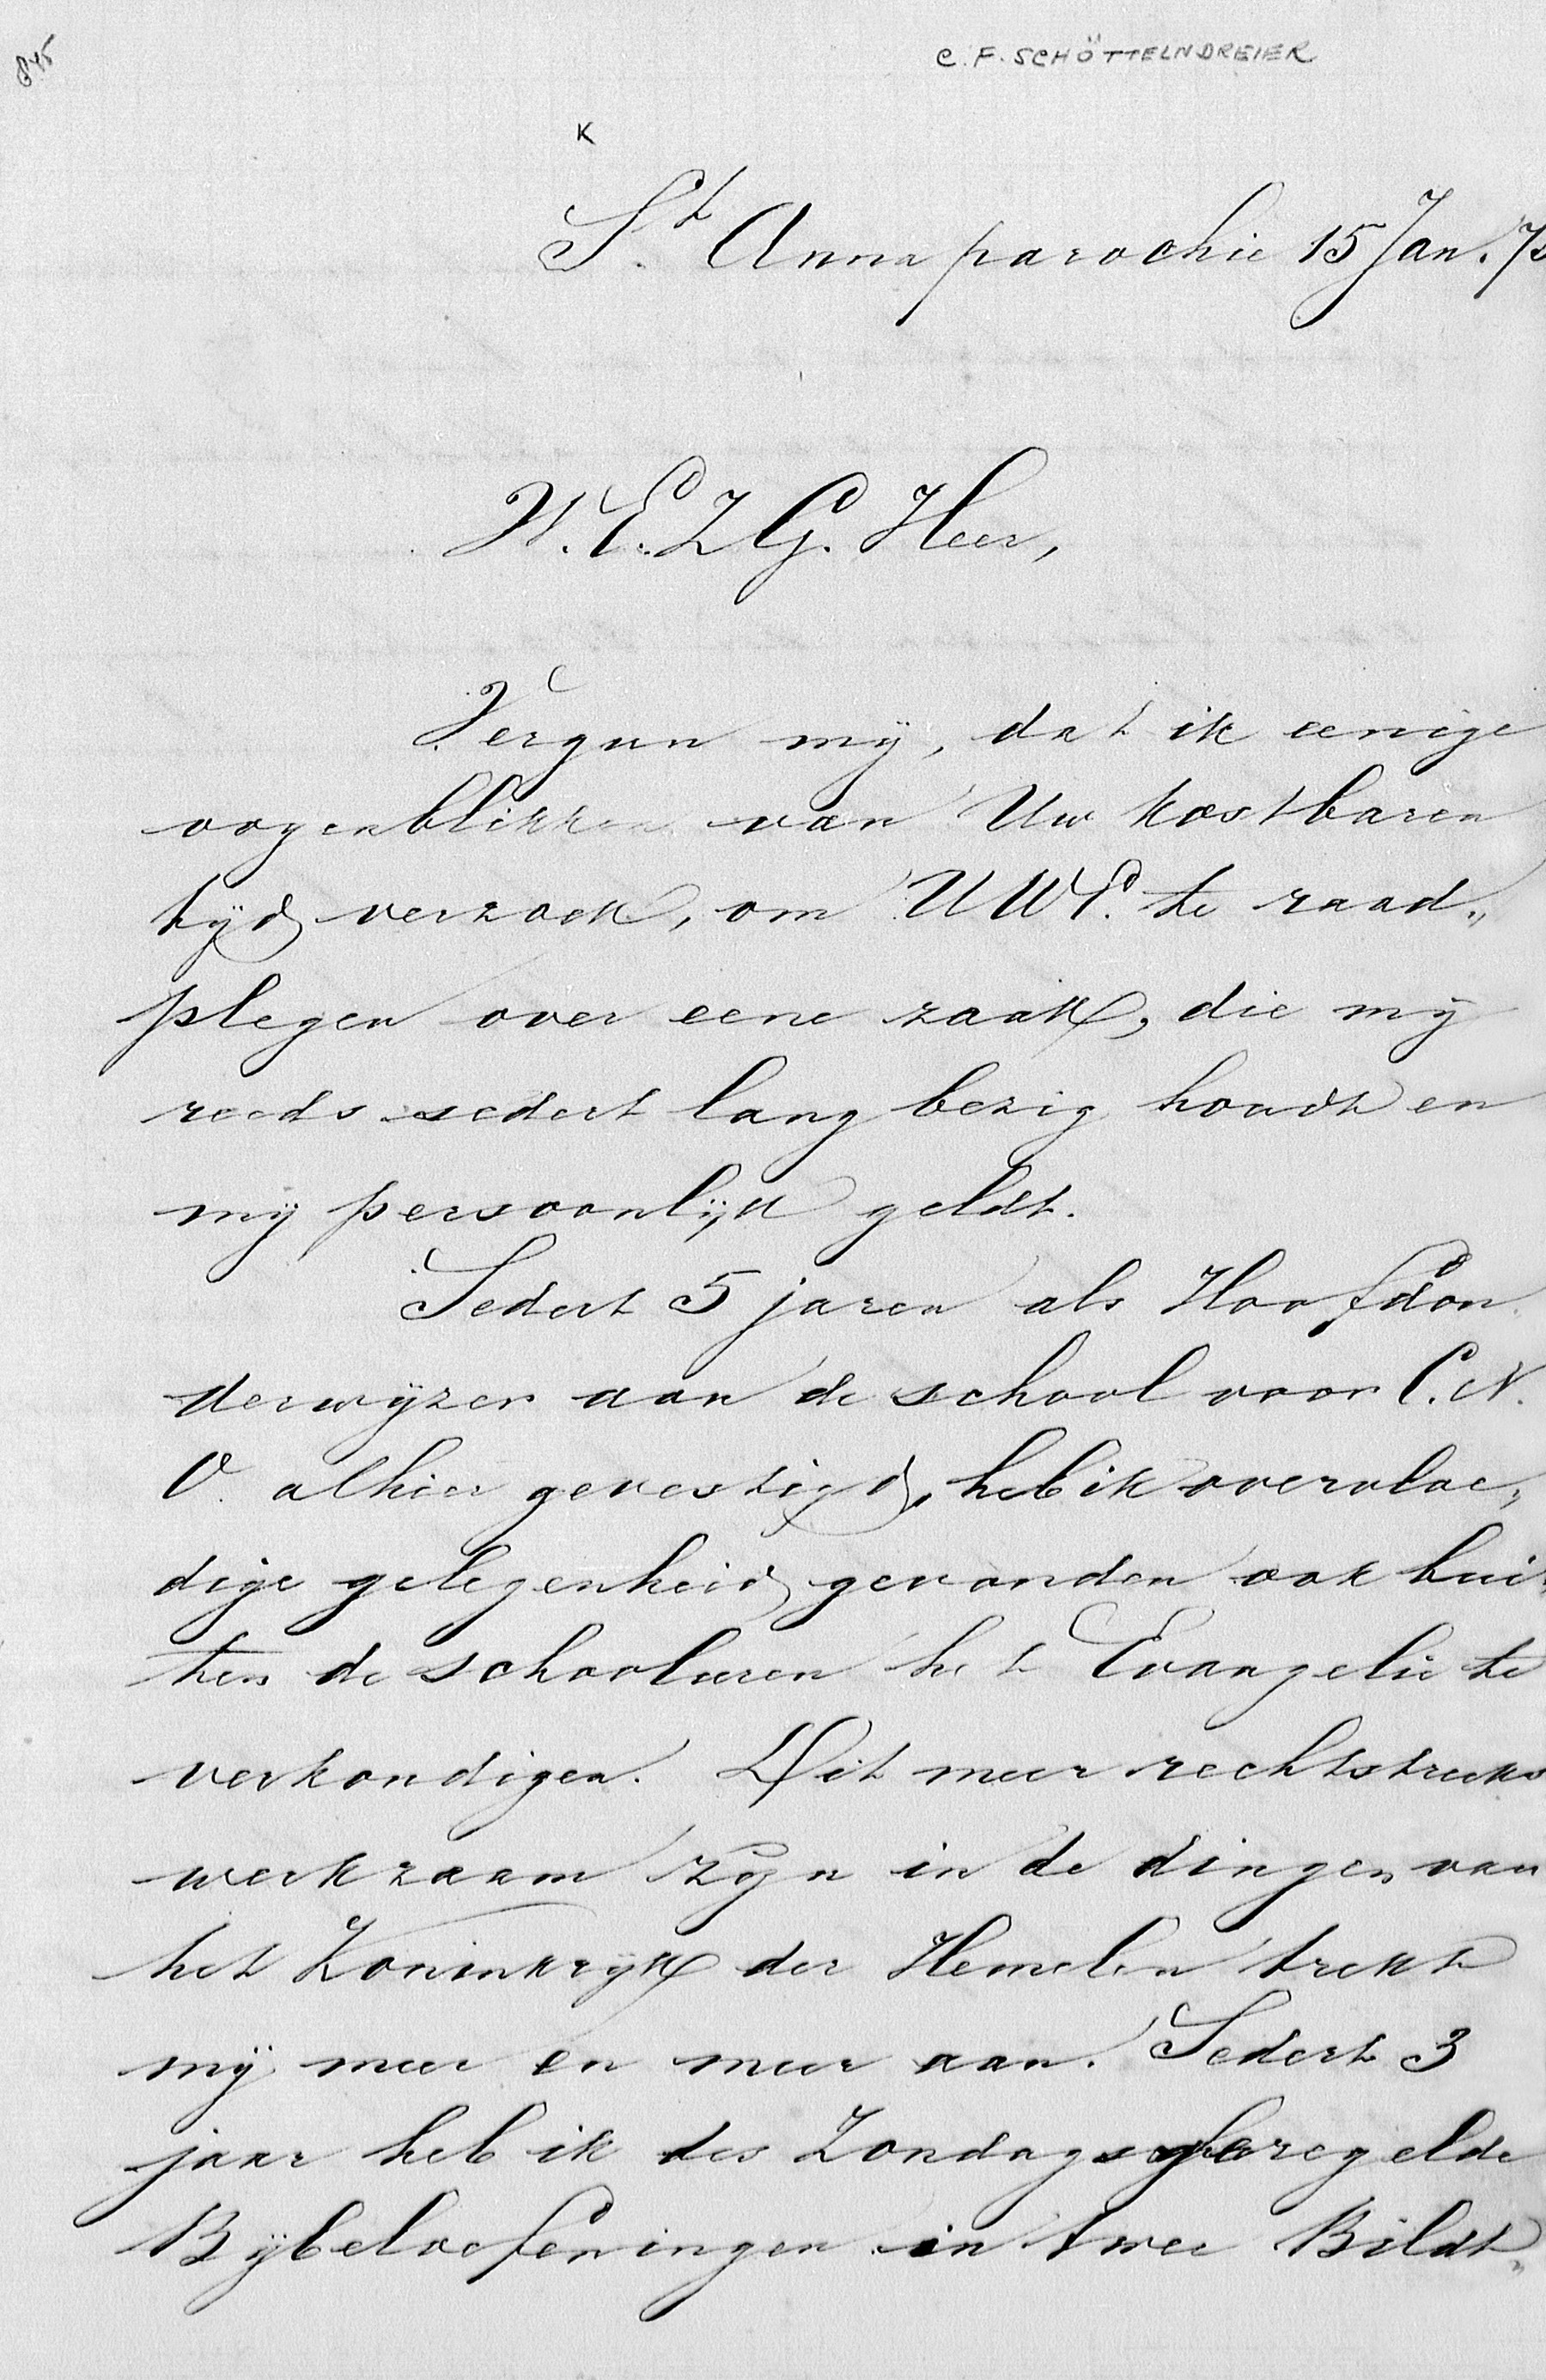 845
C. F. SCHÖTTELNDREIER
K
St. Anna parochie 15 Jan. 7
W. E. Z G. Heer,
Vergun mij, dat ik eenige
oogenblikken van Uw kostbaren
tijd verzoek, om UWE. te raad„
plegen over eene zaak, die mij
reeds sedert lang bezig houdt en
mij persoonlijk geldt.
Sedert 5 jaren als Hoofdon„
derwijzer aan de school voor C. N.
O. alhier gevestigd, heb ik overvloe„
dige gelegenheid gevonden ook bui„
ten de schooluren het Evangelie te
verkondigen. Dit meer rechtstreeks
werkzaam zijn in de dingen van
het Koninkrijk der Hemelen trekt
mij meer en meer aan. Sedert 3
jaar heb ik des Zondags geregelde
Bijbeloefeningen in twee Bildt„